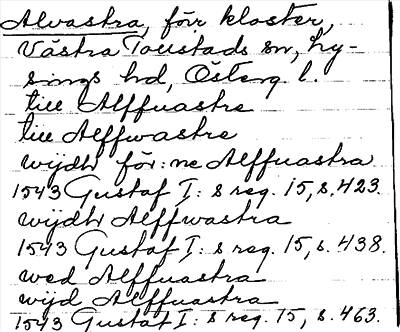 Alvastra, förr kloster,
Västra Tollstads sn, Ly-
sings hd, Österg. l.
till Alffuastre
till Alffwastre
wijdh för:ne Alffuastra
1543 Gustaf I:s reg. 15, s. 423.
wijdh Alffwastra
1543 Gustaf I:s reg. 15, s. 438.
wed Alffuastra
wijd Alffuastra
1543 Gustaf I:s reg. 15, s. 463.